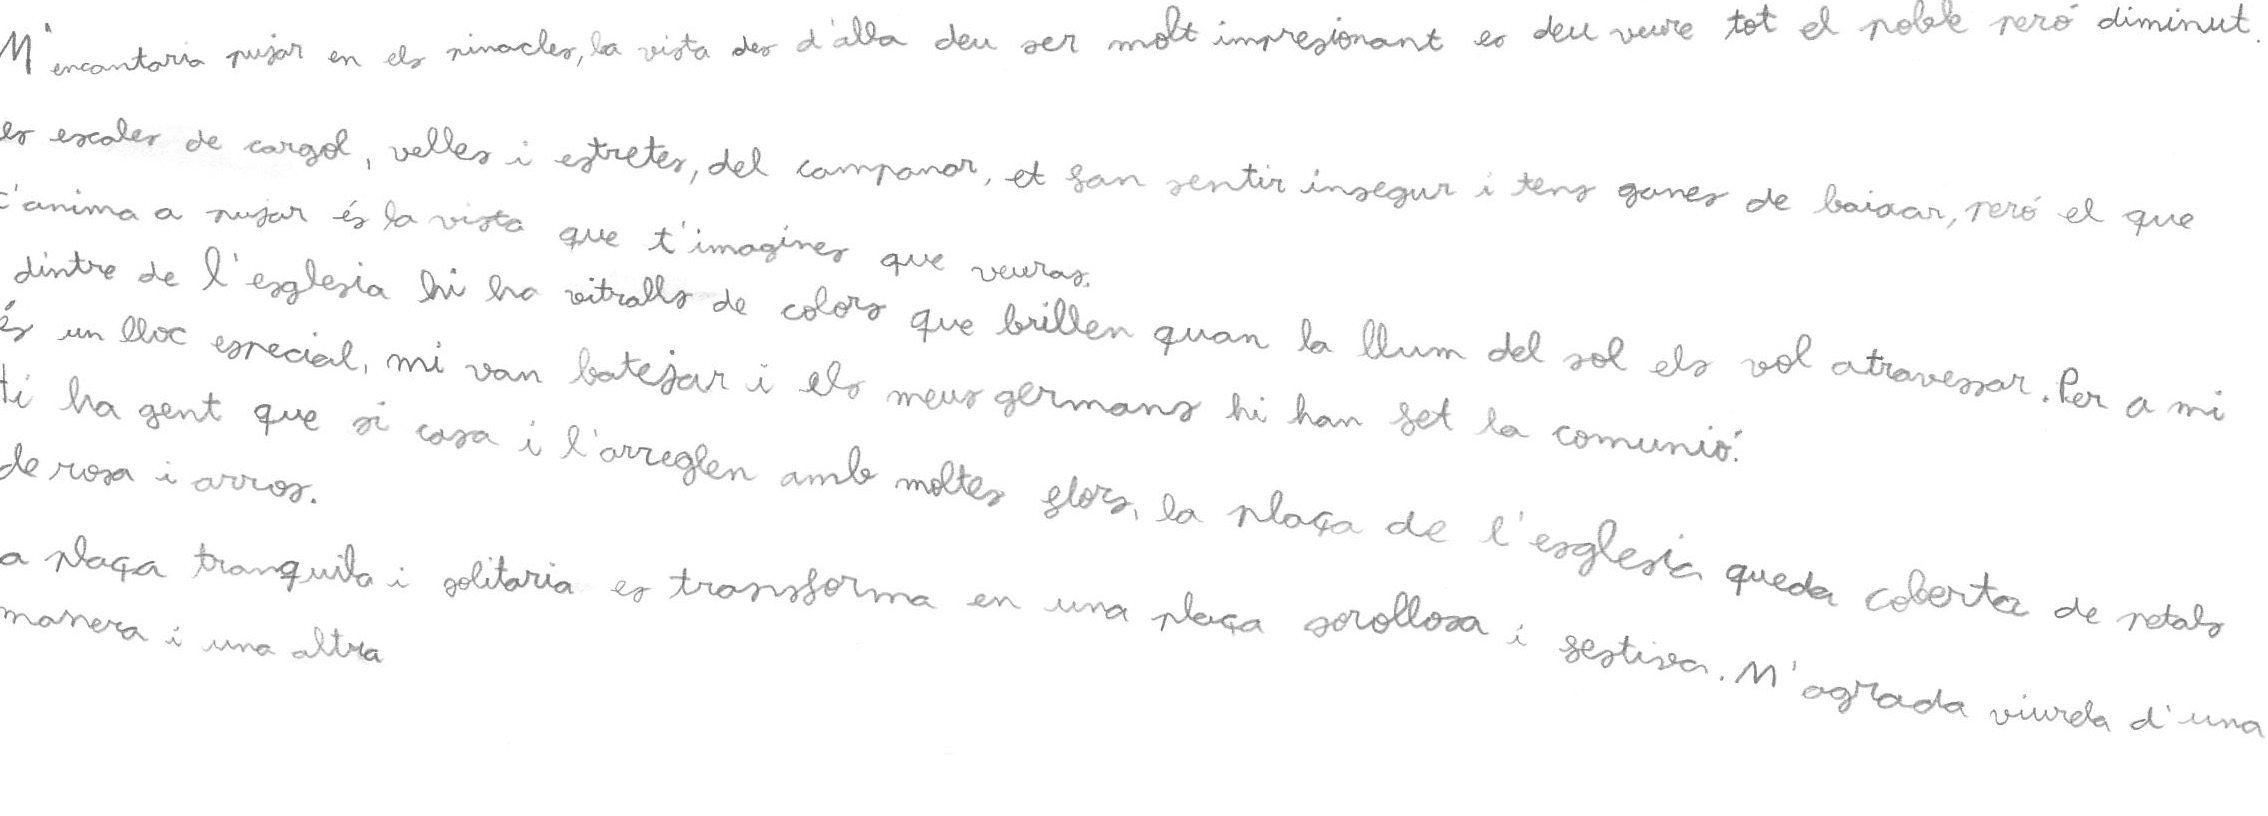 M'encantaria pujar en els pinacles, la vista des d'alla deu ser molt impresionant es deu veure tot el poble peró diminut.
es escales de cargol, velles i estretes, del campanar, et fan sentir insegur i tens ganes de baixar, peró el que
t'anima a pujar és la vista que t'imagines que veuras.
dintre de l'esglesia hi ha vitralls de colors que brillen quan la llum del sol els vol atravessar. Per a mi
és un lloc especial, mi van batejar i els meus germans hi han fet la comunió.
Hi ha gent que si casa i l'arreglen amb moltes flors, la plaça de l'esglesia queda coberta de petals
de rosa i arros.
a plaça tranquila i solitaria es transforma en una plaça sorollosa i festiva. M'agrada viurela d'una
manera i una altra